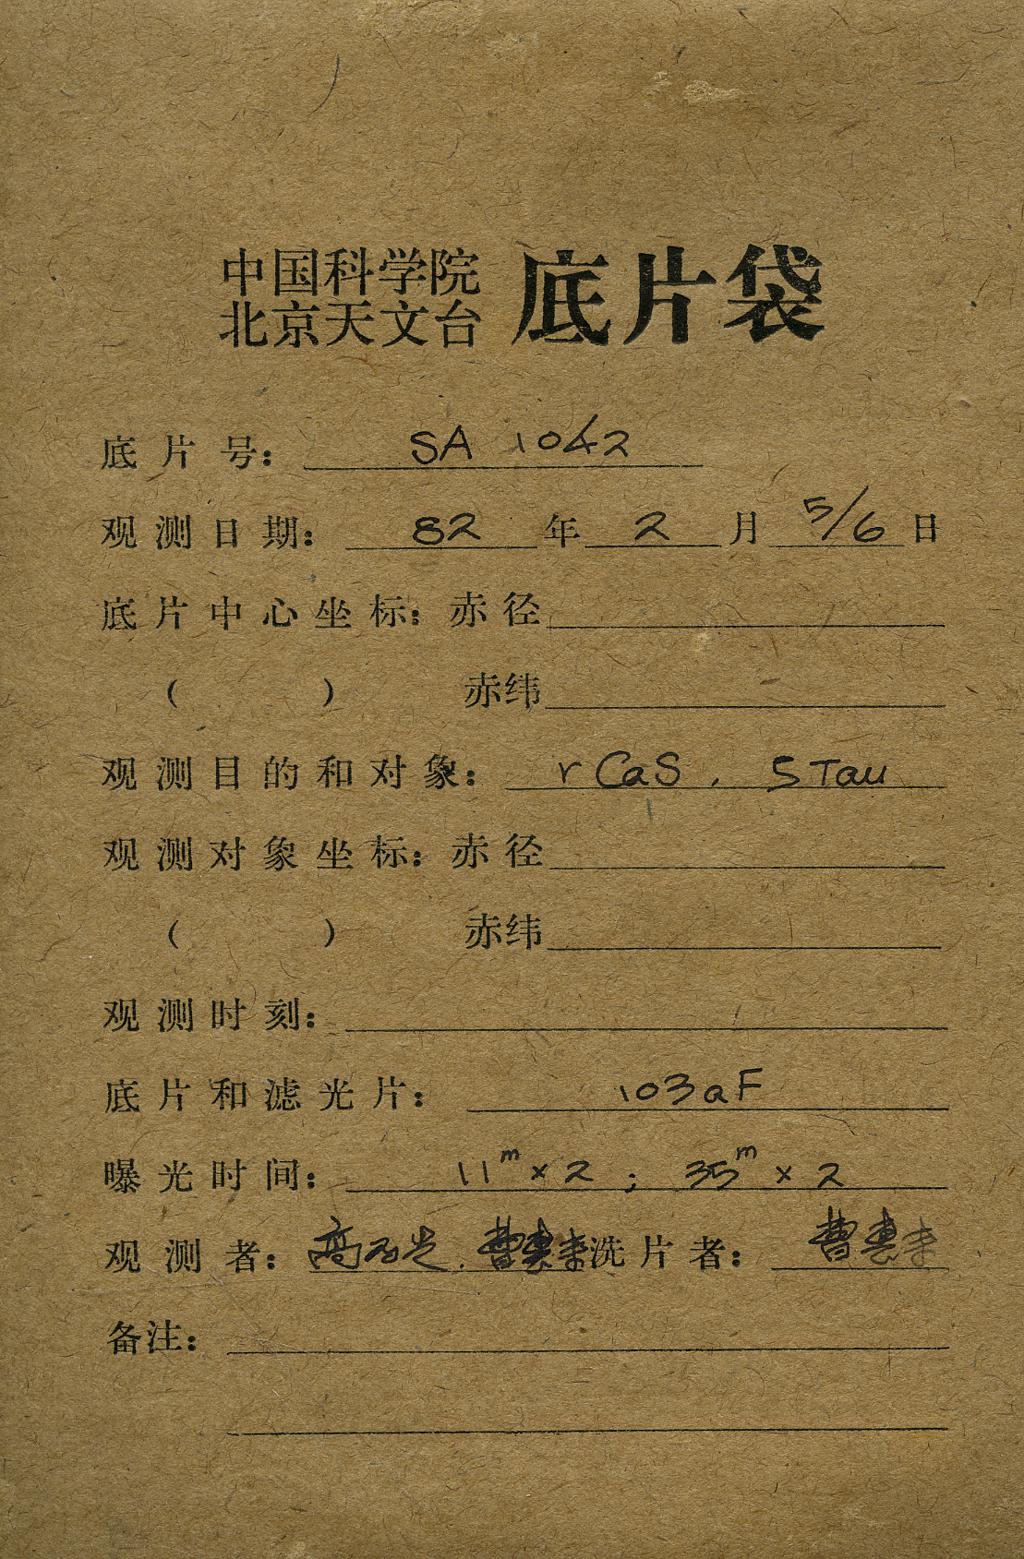 中国科学院
北京天文台 底片袋
底片号: SA 1042
观测日期: 82 年 2 月 5/6 日
底片中心坐标: 赤径
( ) 赤纬
观测目的和对象: r CaS . 5 Tau
观测对象坐标: 赤径
( ) 赤纬
观测时刻:
底片和滤光片: 103aF
曝光时间: 11m × 2 ; 35m × 2
观测者: 高 . 曹惠来 洗片者: 曹惠来
备注: